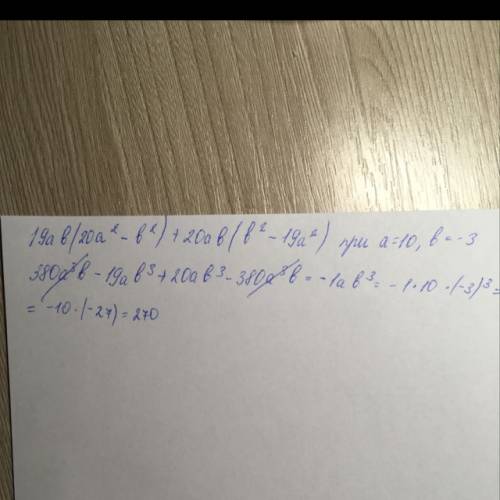 19ab(20a² - b²) + 20ab(b² - 19a²) при a=10, b=-3
380a³b - 19ab³ + 20ab³ - 380a³b = -1ab³ = -1·10·(-3)³ =
= -10·(-27) = 270